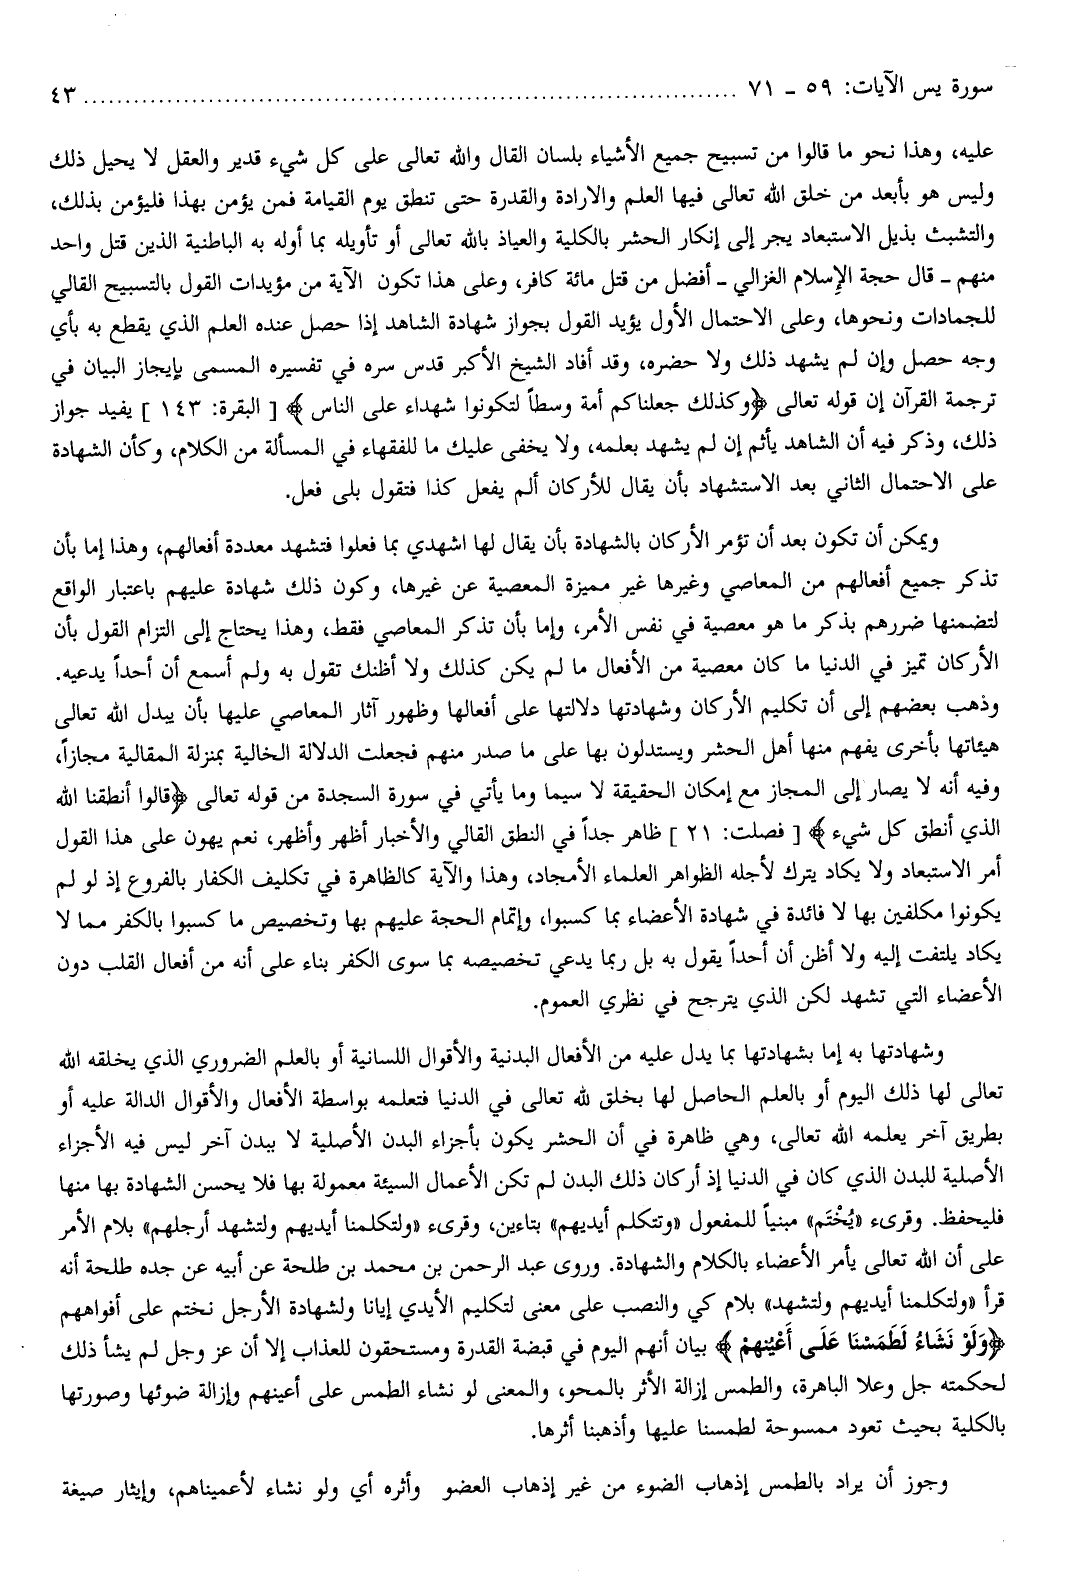 سورة يس الآيات: ٥٩ ـ ٧١ ................................................................................ ٤٣
عليه، وهذا نحو ما قالوا من تسبيح جميع الأشياء بلسان القال والله تعالى على كل شيء قدير والعقل لا يحيل ذلك
وليس هو بأبعد من خلق الله تعالى فيها العلم والارادة والقدرة حتى تنطق يوم القيامة فمن يؤمن بهذا فليؤمن بذلك،
والتشبث بذيل الاستبعاد يجر إلى إنكار الحشر بالكلية والعياذ بالله تعالى أو تأويله بما أوله به الباطنية الذين قتل واحد
منهم ـ قال حجة الإسلام الغزالي ـ أفضل من قتل مائة كافر، وعلى هذا تكون الآية من مؤيدات القول بالتسبيح القالي
للجمادات ونحوها، وعلى الاحتمال الأول يؤيد القول بجواز شهادة الشاهد إذا حصل عنده العلم الذي يقطع به بأي
وجه حصل وإن لم يشهد ذلك ولا حضره، وقد أفاد الشيخ الأكبر قدس سره في تفسيره المسمى بإيجاز البيان في
ترجمة القرآن إن قوله تعالى ﴿وكذلك جعلناكم أمة وسطاً لتكونوا شهداء على الناس﴾ [ البقرة: ١٤٣ ] يفيد جواز
ذلك، وذكر فيه أن الشاهد يأثم إن لم يشهد بعلمه، ولا يخفى عليك ما للفقهاء في المسألة من الكلام، وكأن الشهادة
على الاحتمال الثاني بعد الاستشهاد بأن يقال للأركان ألم يفعل كذا فتقول بلى فعل.
ويمكن أن تكون بعد أن تؤمر الأركان بالشهادة بأن يقال لها اشهدي بما فعلوا فتشهد معددة أفعالهم، وهذا إما بأن
تذكر جميع أفعالهم من المعاصي وغيرها غير مميزة المعصية عن غيرها، وكون ذلك شهادة عليهم باعتبار الواقع
لتضمنها ضررهم بذكر ما هو معصية في نفس الأمر، وإما بأن تذكر المعاصي فقط، وهذا يحتاج إلى التزام القول بأن
الأركان تميز في الدنيا ما كان معصية من الأفعال ما لم يكن كذلك ولا أظنك تقول به ولم أسمع أن أحداً يدعيه.
وذهب بعضهم إلى أن تكليم الأركان وشهادتها دلالتها على أفعالها وظهور آثار المعاصي عليها بأن يبدل الله تعالى
هيئاتها بأخرى يفهم منها أهل الحشر ويستدلون بها على ما صدر منهم فجعلت الدلالة الحالية بمنزلة المقالية مجازاً،
وفيه أنه لا يصار إلى المجاز مع إمكان الحقيقة لا سيما وما يأتي في سورة السجدة من قوله تعالى ﴿قالوا أنطقنا الله
الذي أنطق كل شيء﴾ [ فصلت: ٢١ ] ظاهر جداً في النطق القالي والأخبار أظهر وأظهر، نعم يهون على هذا القول
أمر الاستبعاد ولا يكاد يترك لأجله الظواهر العلماء الأمجاد، وهذا والآية كالظاهرة في تكليف الكفار بالفروع إذ لو لم
يكونوا مكلفين بها لا فائدة في شهادة الأعضاء بما كسبوا، وإتمام الحجة عليهم بها وتخصيص ما كسبوا بالكفر مما لا
يكاد يلتفت إليه ولا أظن أن أحداً يقول به بل ربما يدعي تخصيصه بما سوى الكفر بناء على أنه من أفعال القلب دون
الأعضاء التي تشهد لكن الذي يترجح في نظري العموم.
وشهادتها به إما بشهادتها بما يدل عليه من الأفعال البدنية والأقوال اللسانية أو بالعلم الضروري الذي يخلقه الله
تعالى لها ذلك اليوم أو بالعلم الحاصل لها بخلق لله تعالى في الدنيا فتعلمه بواسطة الأفعال والأقوال الدالة عليه أو
بطريق آخر يعلمه الله تعالى، وهي ظاهرة في أن الحشر يكون بأجزاء البدن الأصلية لا ببدن آخر ليس فيه الأجزاء
الأصلية للبدن الذي كان في الدنيا إذ أركان ذلك البدن لم تكن الأعمال السيئة معمولة بها فلا يحسن الشهادة بها منها
فليحفظ. وقرىء «يُخْتَم» مبنياً للمفعول «وتتكلم أيديهم» بتاءين، وقرىء «ولتكلمنا أيديهم ولتشهد أرجلهم» بلام الأمر
على أن الله تعالى يأمر الأعضاء بالكلام والشهادة. وروى عبد الرحمن بن محمد بن طلحة عن أبيه عن جده طلحة أنه
قرأ «ولتكلمنا أيديهم ولتشهد» بلام كي والنصب على معنى لتكليم الأيدي إيانا ولشهادة الأرجل نختم على أفواههم
﴿وَلَوْ نَشَاءُ لَطَمَسْنَا عَلَى أَعْيُنِهِمْ﴾ بيان أنهم اليوم في قبضة القدرة ومستحقون للعذاب إلا أن عز وجل لم يشأ ذلك
لحكمته جل وعلا الباهرة، والطمس إزالة الأثر بالمحو، والمعنى لو نشاء الطمس على أعينهم وإزالة ضوئها وصورتها
بالكلية بحيث تعود ممسوحة لطمسنا عليها وأذهبنا أثرها.
وجوز أن يراد بالطمس إذهاب الضوء من غير إذهاب العضو وأثره أي ولو نشاء لأعميناهم، وإيثار صيغة